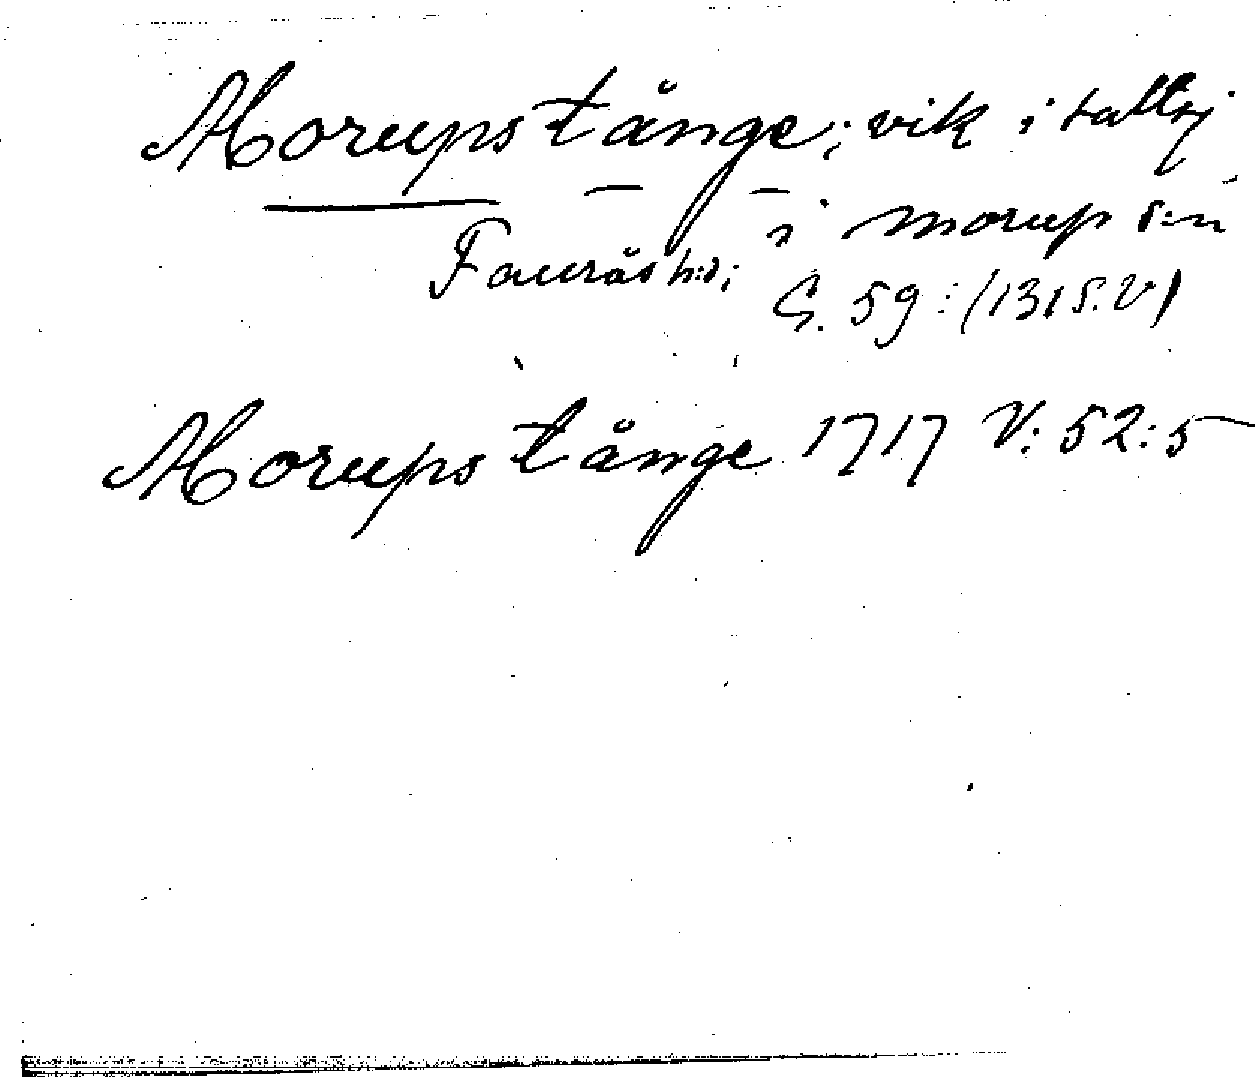 Morups tånge; vik i
i Morup s:n
Faurås h:d;
S. 59: (1315.V)
Morups tånge 1717 V: 52:5